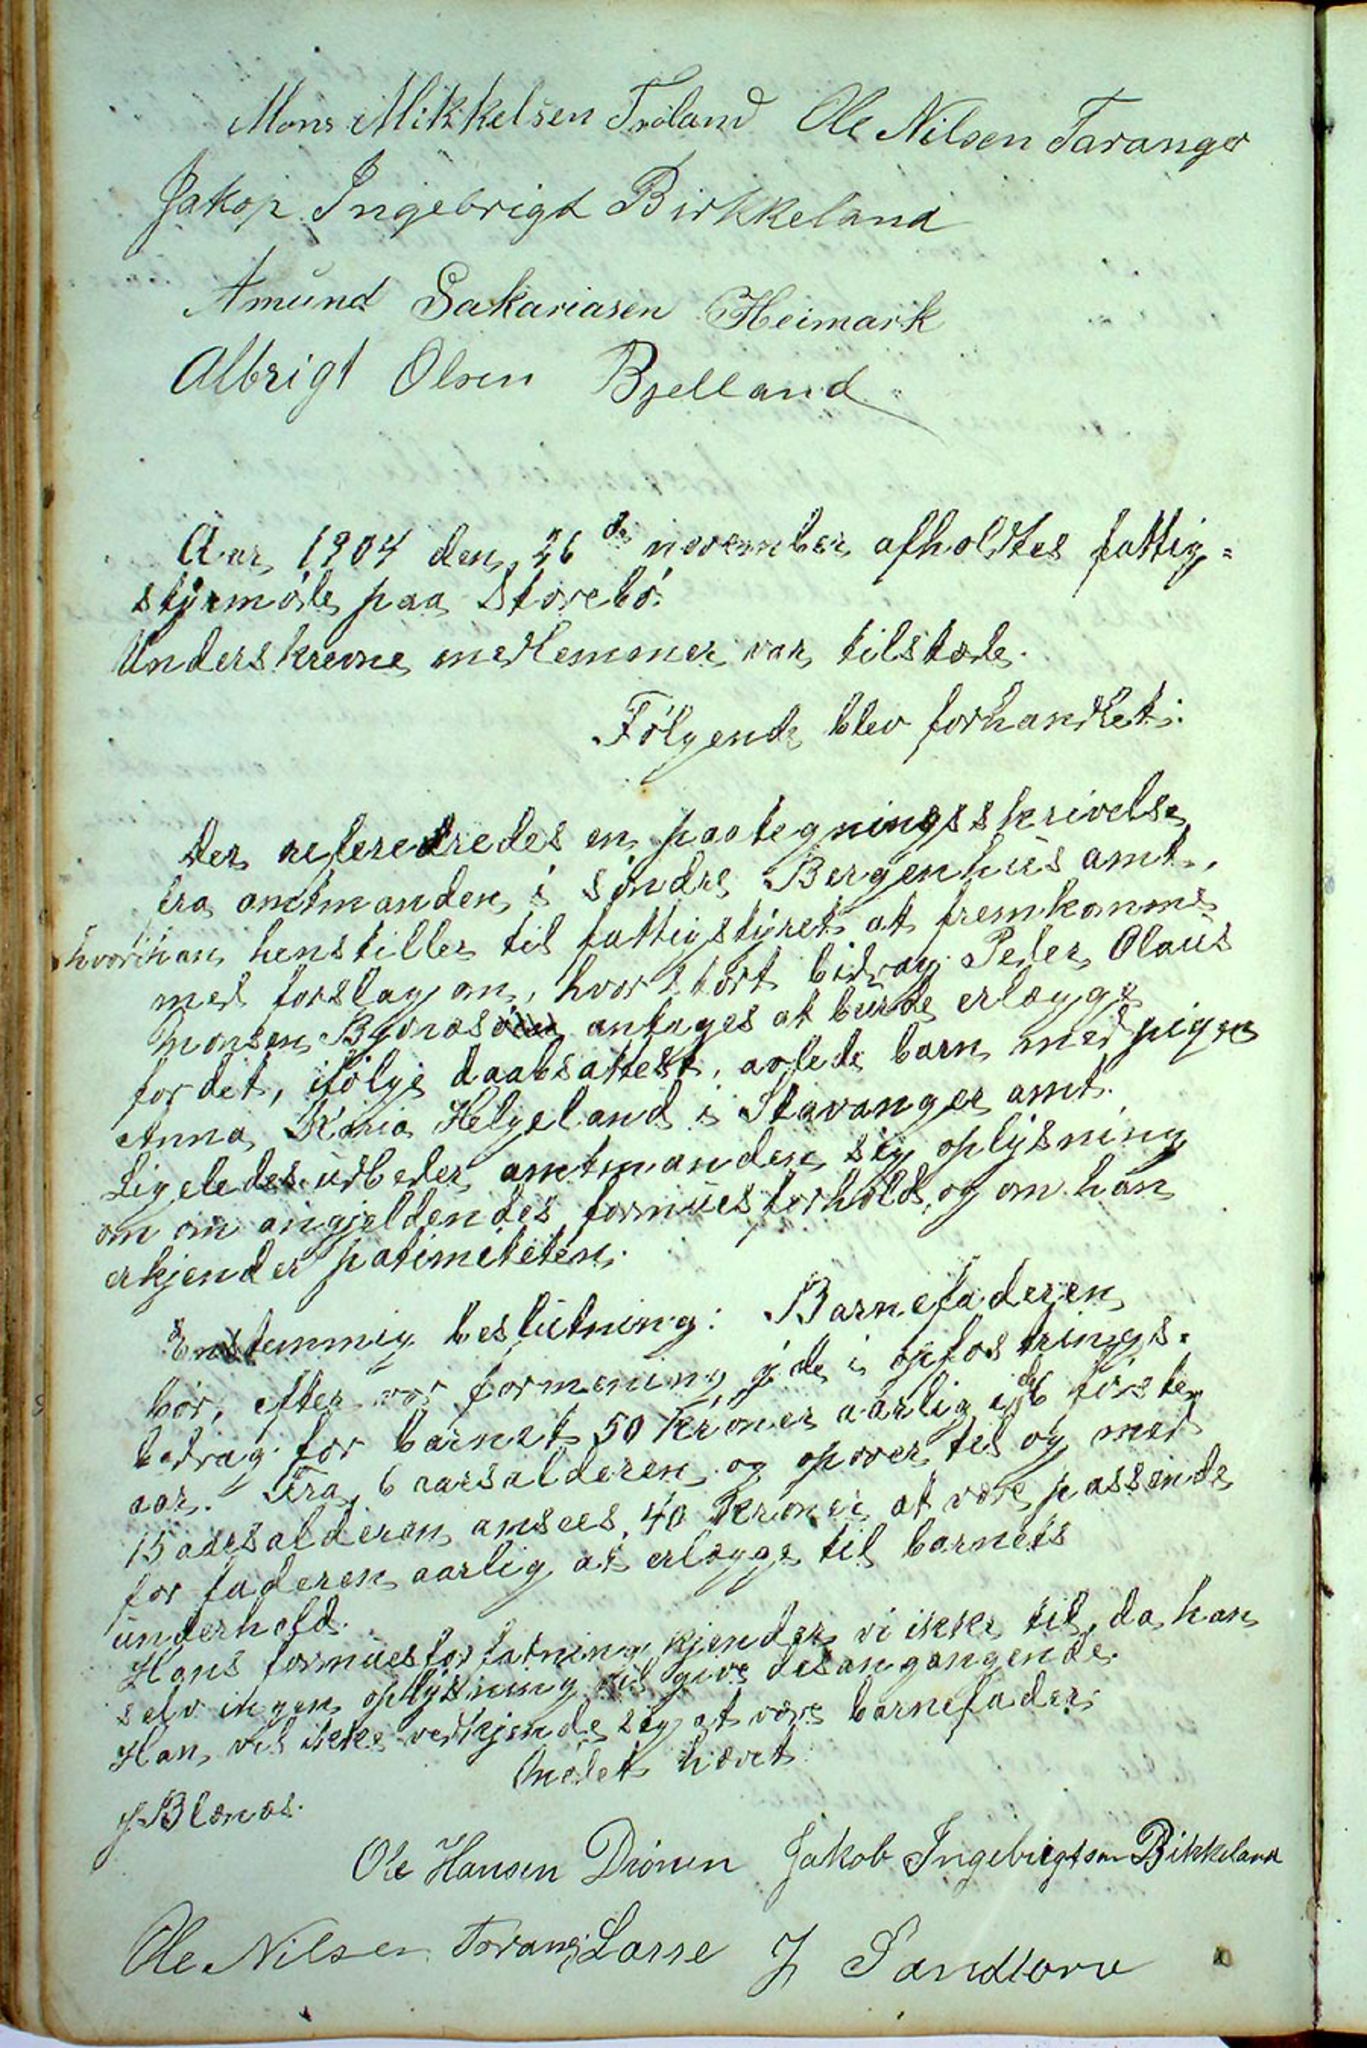 Mons Mikkelsen Troland Ole Nilsen Taranger
Jakop Ingebrigt Birkkeland
Amund Sakariasen Heimark
Albrigt Olsen Bjelland
Aar 1904 den 26de november afholdtes fattig-
styremøde paa Storebø.
Underskrevne medlemmer var tilstede.
Følgende blev forhandlet:
Der referedredes en paategningsskrivelse
fra amtmanden i søndre Bergenhus amt,
hvori han henstiller til fattigstyret at fremkomme
med forslag om, hvor stort bidrag Peder Olaus
Monsen antages at burde erlægge
for det, ifølge daabsattest, avlede barn med pigen
Anna Karia Helgeland i Stavanger amt.
Ligeledes udbeder amtmanden sig oplysning
om om angjeldendes formuesforhold, og om han
erkjender patirniteten.
Enstemmig beslutning: Barnefaderen
bør, efter vor formening yde i opfostrings-
bidrag for barnet 50 kroner aarlig i de 6 første
aar. Fra 6 aarsalderen og opover til og med
15 aarsalderen ansees 40 kroner at være passende
for faderen aarlig at erlægge til barnets
underhold.
Hans formuesforfatning kjender vi ikke til, da han
selv ingen oplysning vil give desangaagende.
Han vil ikke vedkjende sig at være barnefader.
Mødet hævet
J Blænes.
Ole Hansen Drønen Jakob Ingebrigtsen Birkkeland
Ole Nilsen Tarang Lasse J Sandtorv